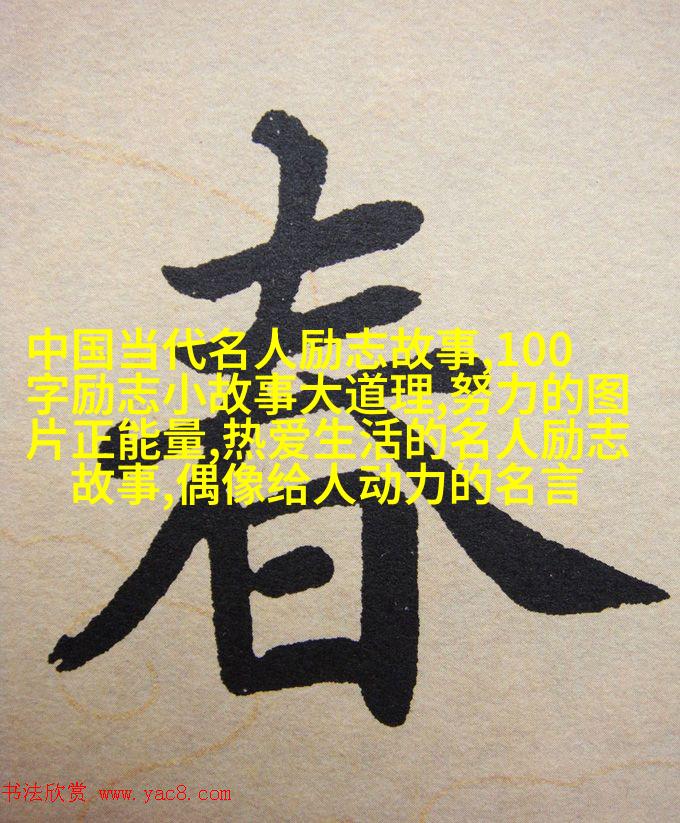 春
中国当代名人励志故事,100
字励志小故事大道理,努力的图
片正能量,热爱生活的名人励志
故事,偶像给人动力的名言
书法欣赏 www.yac8.com